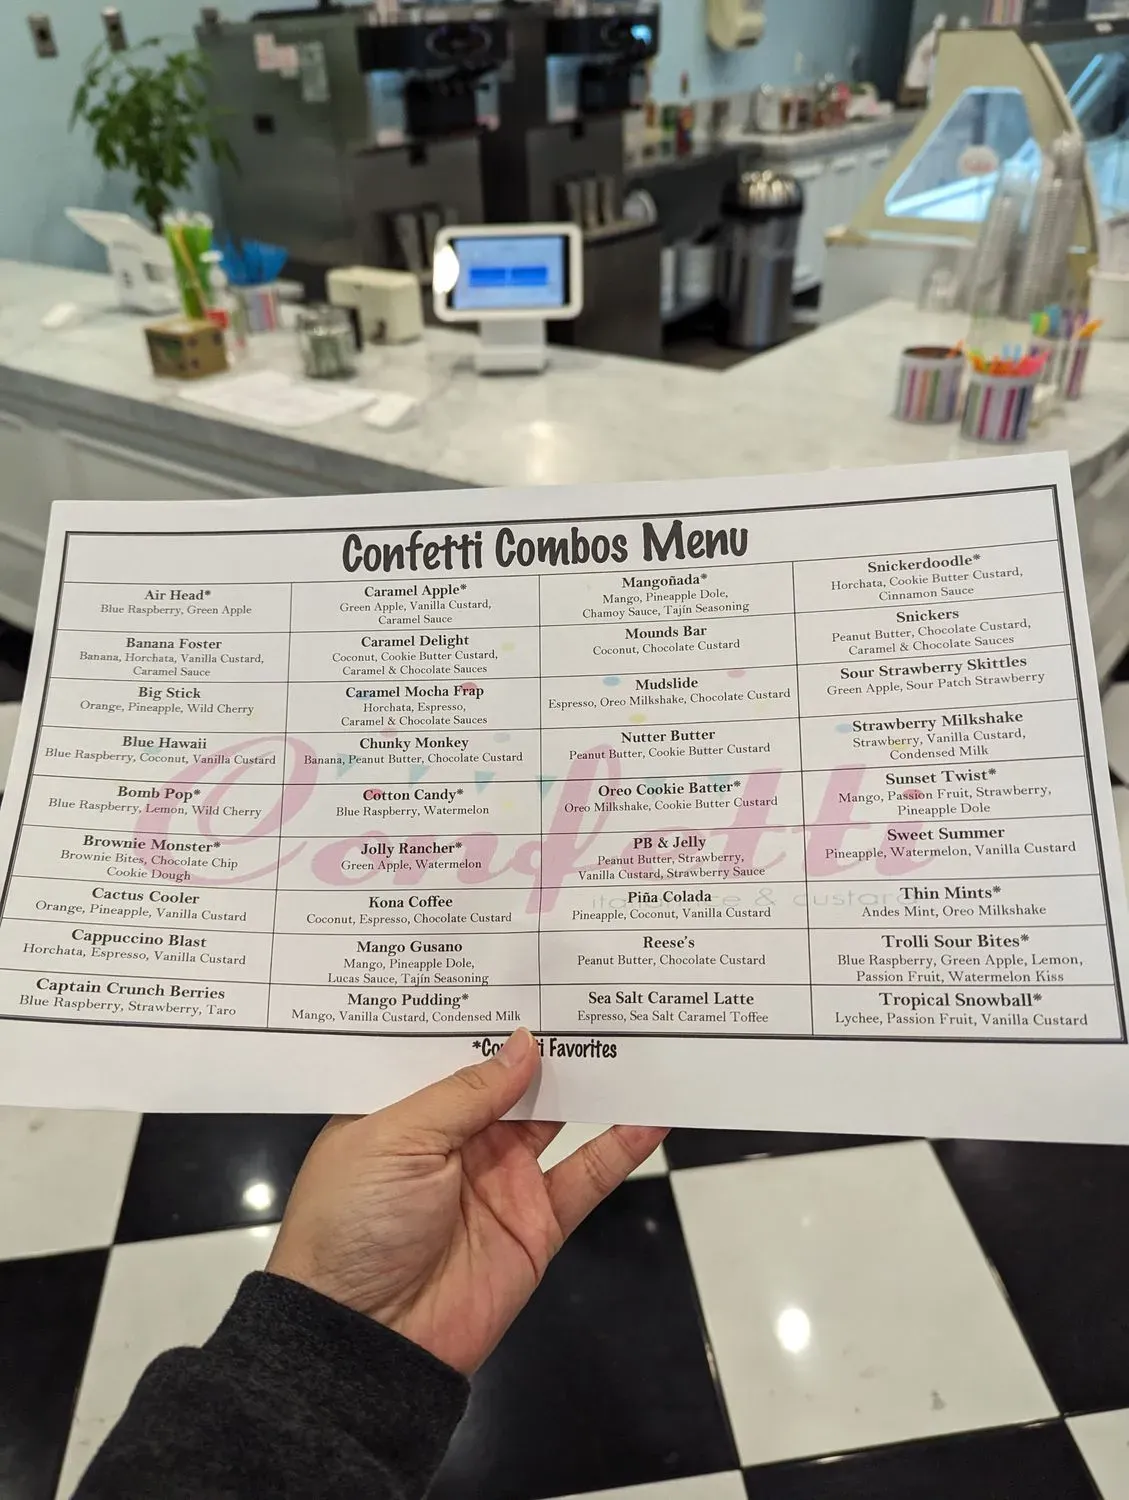 Confetti Combos Menu
Air Head*
Blue Raspberry, Green Apple
Banana Foster
Banana, Horchata, Vanilla Custard,
Caramel Sauce
Big Stick
Orange, Pineapple, Wild Cherry
Blue Hawaii
Blue Raspberry, Coconut, Vanilla Custard
Bomb Pop*
Blue Raspberry, Lemon, Wild Cherry
Brownie Monster*
Brownie Bites, Chocolate Chip
Cookie Dough
Cactus Cooler
Orange, Pineapple, Vanilla Custard
Cappuccino Blast
Horchata, Espresso, Vanilla Custard
Captain Crunch Berries
Blue Raspberry, Strawberry, Taro
Caramel Apple*
Green Apple, Vanilla Custard,
Caramel Sauce
Caramel Delight
Coconut, Cookie Butter Custard,
Caramel & Chocolate Sauces
Caramel Mocha Frap
Horchata, Espresso,
Caramel & Chocolate Sauces
Chunky Monkey
Banana, Peanut Butter, Chocolate Custard
Cotton Candy*
Blue Raspberry, Watermelon
Jolly Rancher*
Green Apple, Watermelon
Kona Coffee
Coconut, Espresso, Chocolate Custard
Mango Gusano
Mango, Pineapple Dole,
Lucas Sauce, Tajín Seasoning
Mango Pudding*
Mango, Vanilla Custard, Condensed Milk
Mangoñada*
Mango, Pineapple Dole,
Chamoy Sauce, Tajín Seasoning
Mounds Bar
Coconut, Chocolate Custard
Mudslide
Espresso, Oreo Milkshake, Chocolate Custard
Nutter Butter
Peanut Butter, Cookie Butter Custard
Oreo Cookie Batter*
Oreo Milkshake, Cookie Butter Custard
PB & Jelly
Peanut Butter, Strawberry,
Vanilla Custard, Strawberry Sauce
Piña Colada
Pineapple, Coconut, Vanilla Custard
Reese's
Peanut Butter, Chocolate Custard
Sea Salt Caramel Latte
Espresso, Sea Salt Caramel Toffee
Snickerdoodle*
Horchata, Cookie Butter Custard,
Cinnamon Sauce
Snickers
Peanut Butter, Chocolate Custard,
Caramel & Chocolate Sauces
Sour Strawberry Skittles
Green Apple, Sour Patch Strawberry
Strawberry Milkshake
Strawberry, Vanilla Custard,
Condensed Milk
Sunset Twist*
Mango, Passion Fruit, Strawberry,
Pineapple Dole
Sweet Summer
Pineapple, Watermelon, Vanilla Custard
Thin Mints*
Andes Mint, Oreo Milkshake
Trolli Sour Bites*
Blue Raspberry, Green Apple, Lemon,
Passion Fruit, Watermelon Kiss
Tropical Snowball*
Lychee, Passion Fruit, Vanilla Custard
Favorites
Confetti
& custard